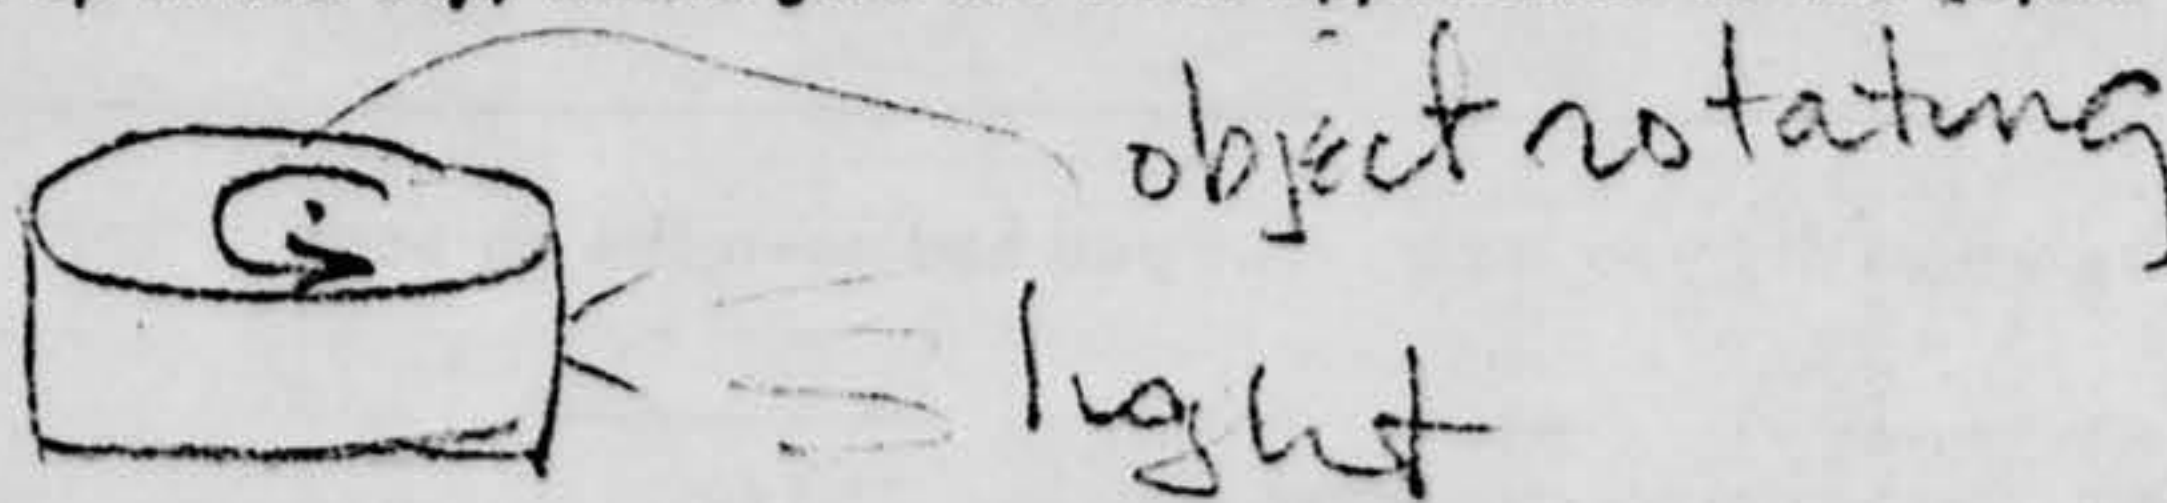 object rotating
light